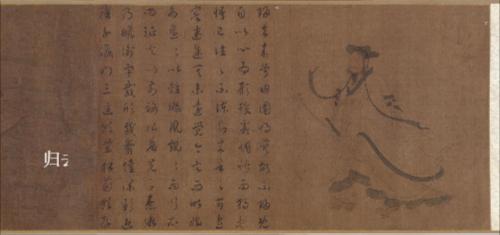 歸去來兮田園將蕪胡不歸既
自以心為形役奚惆悵而獨悲
悟已往之不諫知來者之可追
實迷途其未遠覺今是而昨非
舟遙〻以輕颺風飄〻而吹衣
問征夫以前路恨晨光之熹微
乃瞻衡宇載欣載奔僮僕歡迎
稚子候門三逕就荒松菊猶存
归